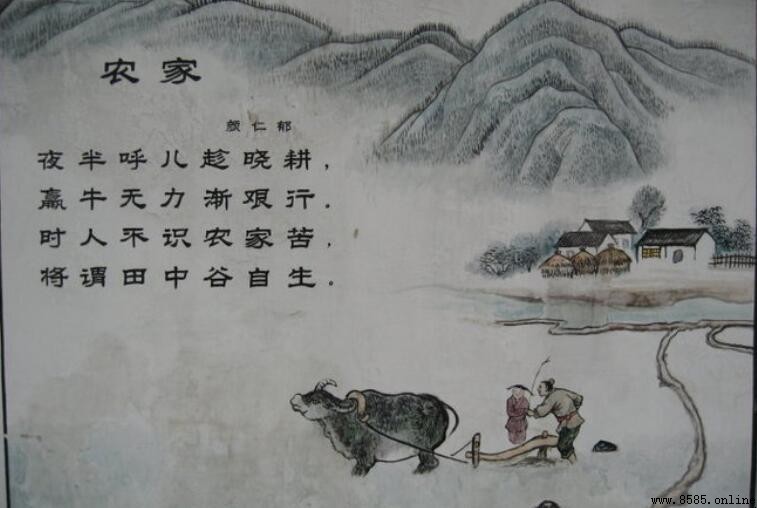 农家
颜仁郁
夜半呼儿趁晓耕，
羸牛无力渐艰行。
时人不识农家苦，
将谓田中谷自生。
www.8585.online